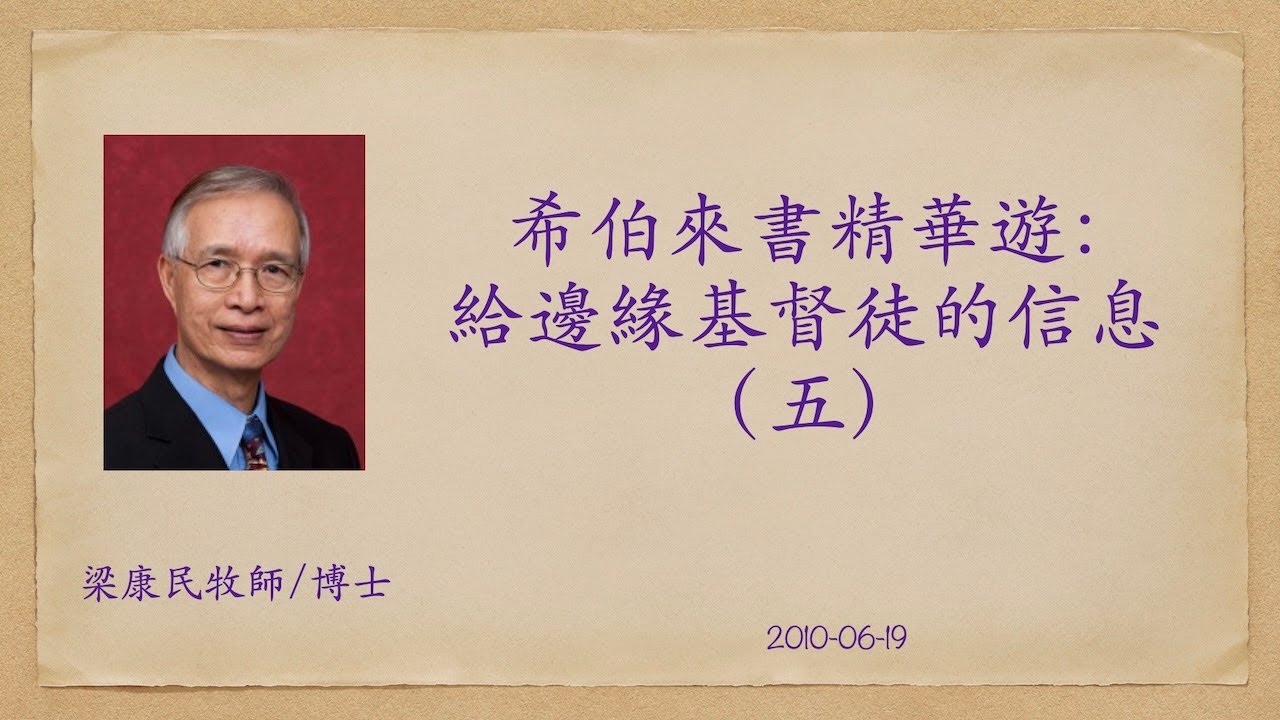 希伯來書精華遊:
給邊緣基督徒的信息
(五)
梁康民牧師/博士
2010-06-19